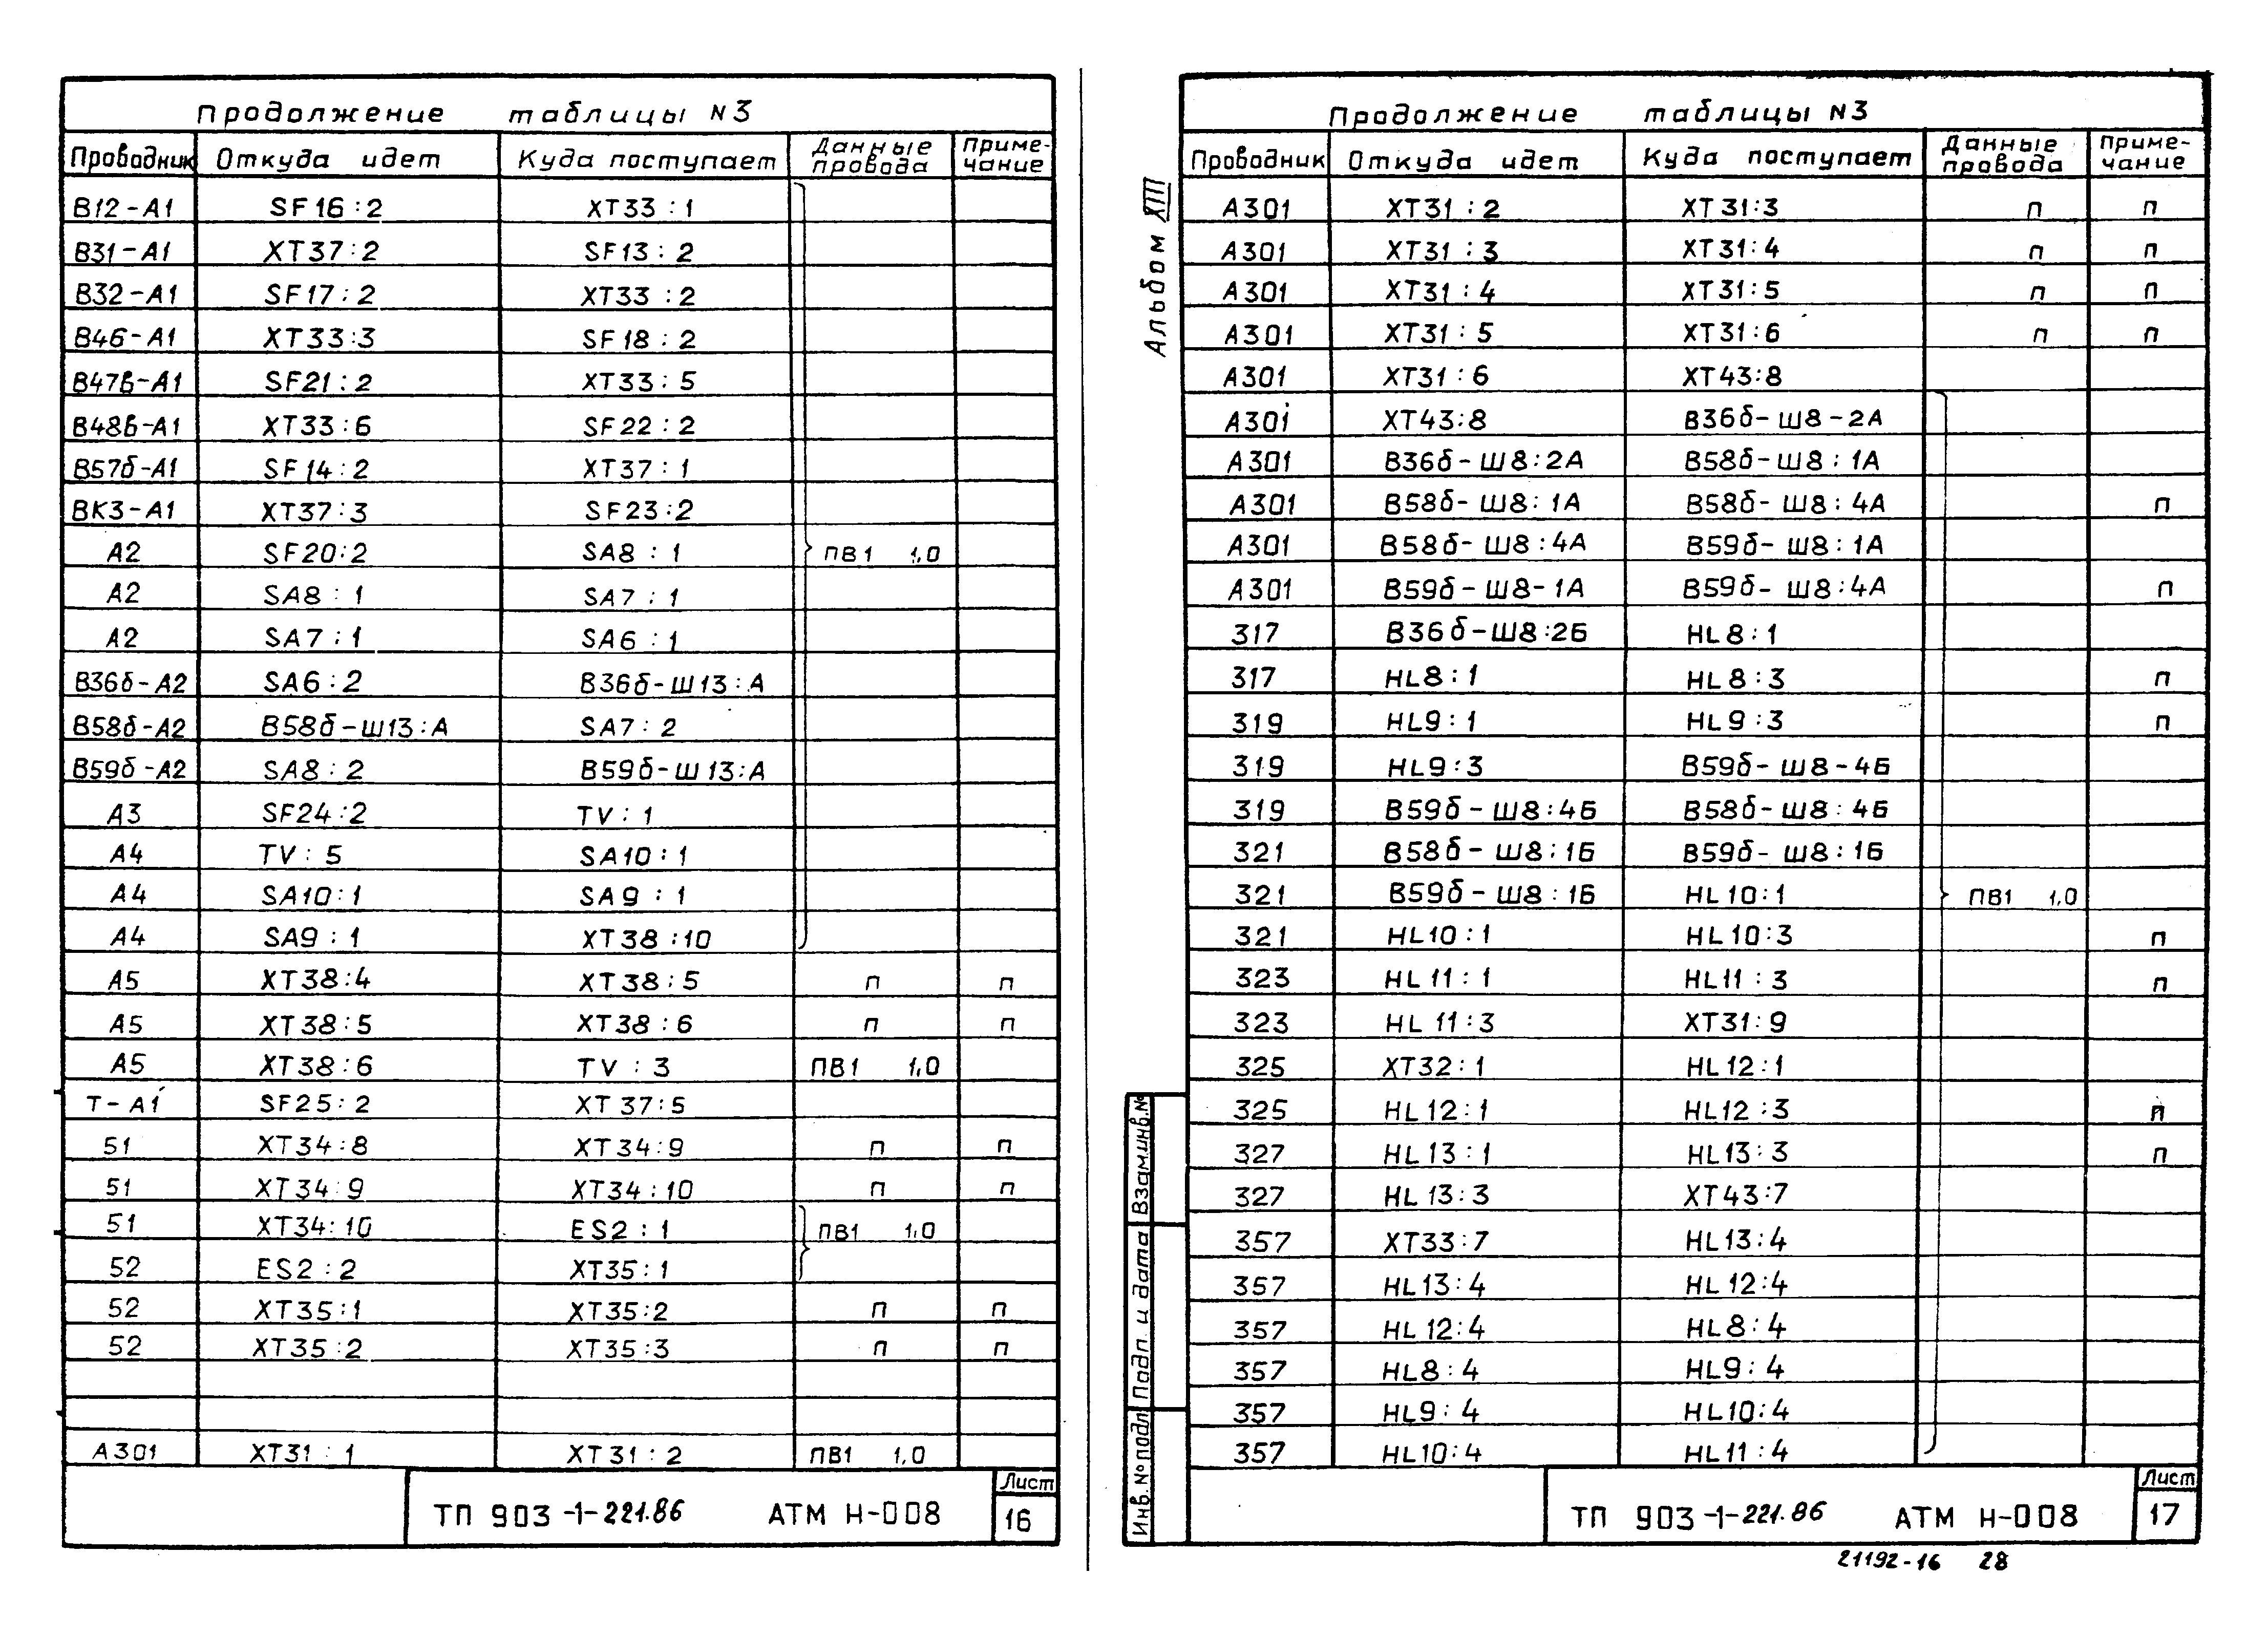 Продолжение таблицы N3
Проводник Откуда идет Куда поступает Данные провода Примечание
В12-А1 SF16:2 XT33:1
В31-А1 XT37:2 SF13:2
В32-А1 SF17:2 XT33:2
В46-А1 XT33:3 SF18:2
В47в-А1 SF21:2 XT33:5
В48в-А1 XT33:6 SF22:2
В57б-А1 SF14:2 XT37:1
ВК3-А1 XT37:3 SF23:2
А2 SF20:2 SA8:1 ПВ1 1,0
А2 SA8:1 SA7:1
А2 SA7:1 SA6:1
В36б-А2 SA6:2 В36б-Ш13:А
В58б-А2 В58б-Ш13:А SA7:2
В59б-А2 SA8:2 В59б-Ш13:А
А3 SF24:2 TV:1
А4 TV:5 SA10:1
А4 SA10:1 SA9:1
А4 SA9:1 XT38:10
А5 XT38:4 XT38:5 п п
А5 XT38:5 XT38:6 п п
А5 XT38:6 TV:3 ПВ1 1,0
Т-А1 SF25:2 XT37:5
51 XT34:8 XT34:9 п п
51 XT34:9 XT34:10 п п
51 XT34:10 ES2:1 ПВ1 1,0
52 ES2:2 XT35:1
52 XT35:1 XT35:2 п п
52 XT35:2 XT35:3 п п
А301 XT31:1 XT31:2 ПВ1 1,0
ТП 903-1-221.86 АТМ Н-008
Лист
16
Альбом XIII
Продолжение таблицы N3
Проводник Откуда идет Куда поступает Данные провода Примечание
А301 XT31:2 XT31:3 п п
А301 XT31:3 XT31:4 п п
А301 XT31:4 XT31:5 п п
А301 XT31:5 XT31:6 п п
А301 XT31:6 XT43:8
А301 XT43:8 В36б-Ш8-2А
А301 В36б-Ш8:2А В58б-Ш8:1А
А301 В58б-Ш8:1А В58б-Ш8:4А п
А301 В58б-Ш8:4А В59б-Ш8:1А
А301 В59б-Ш8-1А В59б-Ш8:4А п
317 В36б-Ш8:2Б HL8:1
317 HL8:1 HL8:3 п
319 HL9:1 HL9:3 п
319 HL9:3 В59б-Ш8-4Б
319 В59б-Ш8:4Б В58б-Ш8:4Б
321 В58б-Ш8:1Б В59б-Ш8:1Б
321 В59б-Ш8:1Б HL10:1 ПВ1 1,0
321 HL10:1 HL10:3 п
323 HL11:1 HL11:3 п
323 HL11:3 XT31:9
325 XT32:1 HL12:1
325 HL12:1 HL12:3 п
327 HL13:1 HL13:3 п
327 HL13:3 XT43:7
357 XT33:7 HL13:4
357 HL13:4 HL12:4
357 HL12:4 HL8:4
357 HL8:4 HL9:4
357 HL9:4 HL10:4
357 HL10:4 HL11:4
Инв. № подл. Подп. и дата Взам.инв.№
ТП 903-1-221.86 АТМ Н-008
Лист
17
21192-16 28